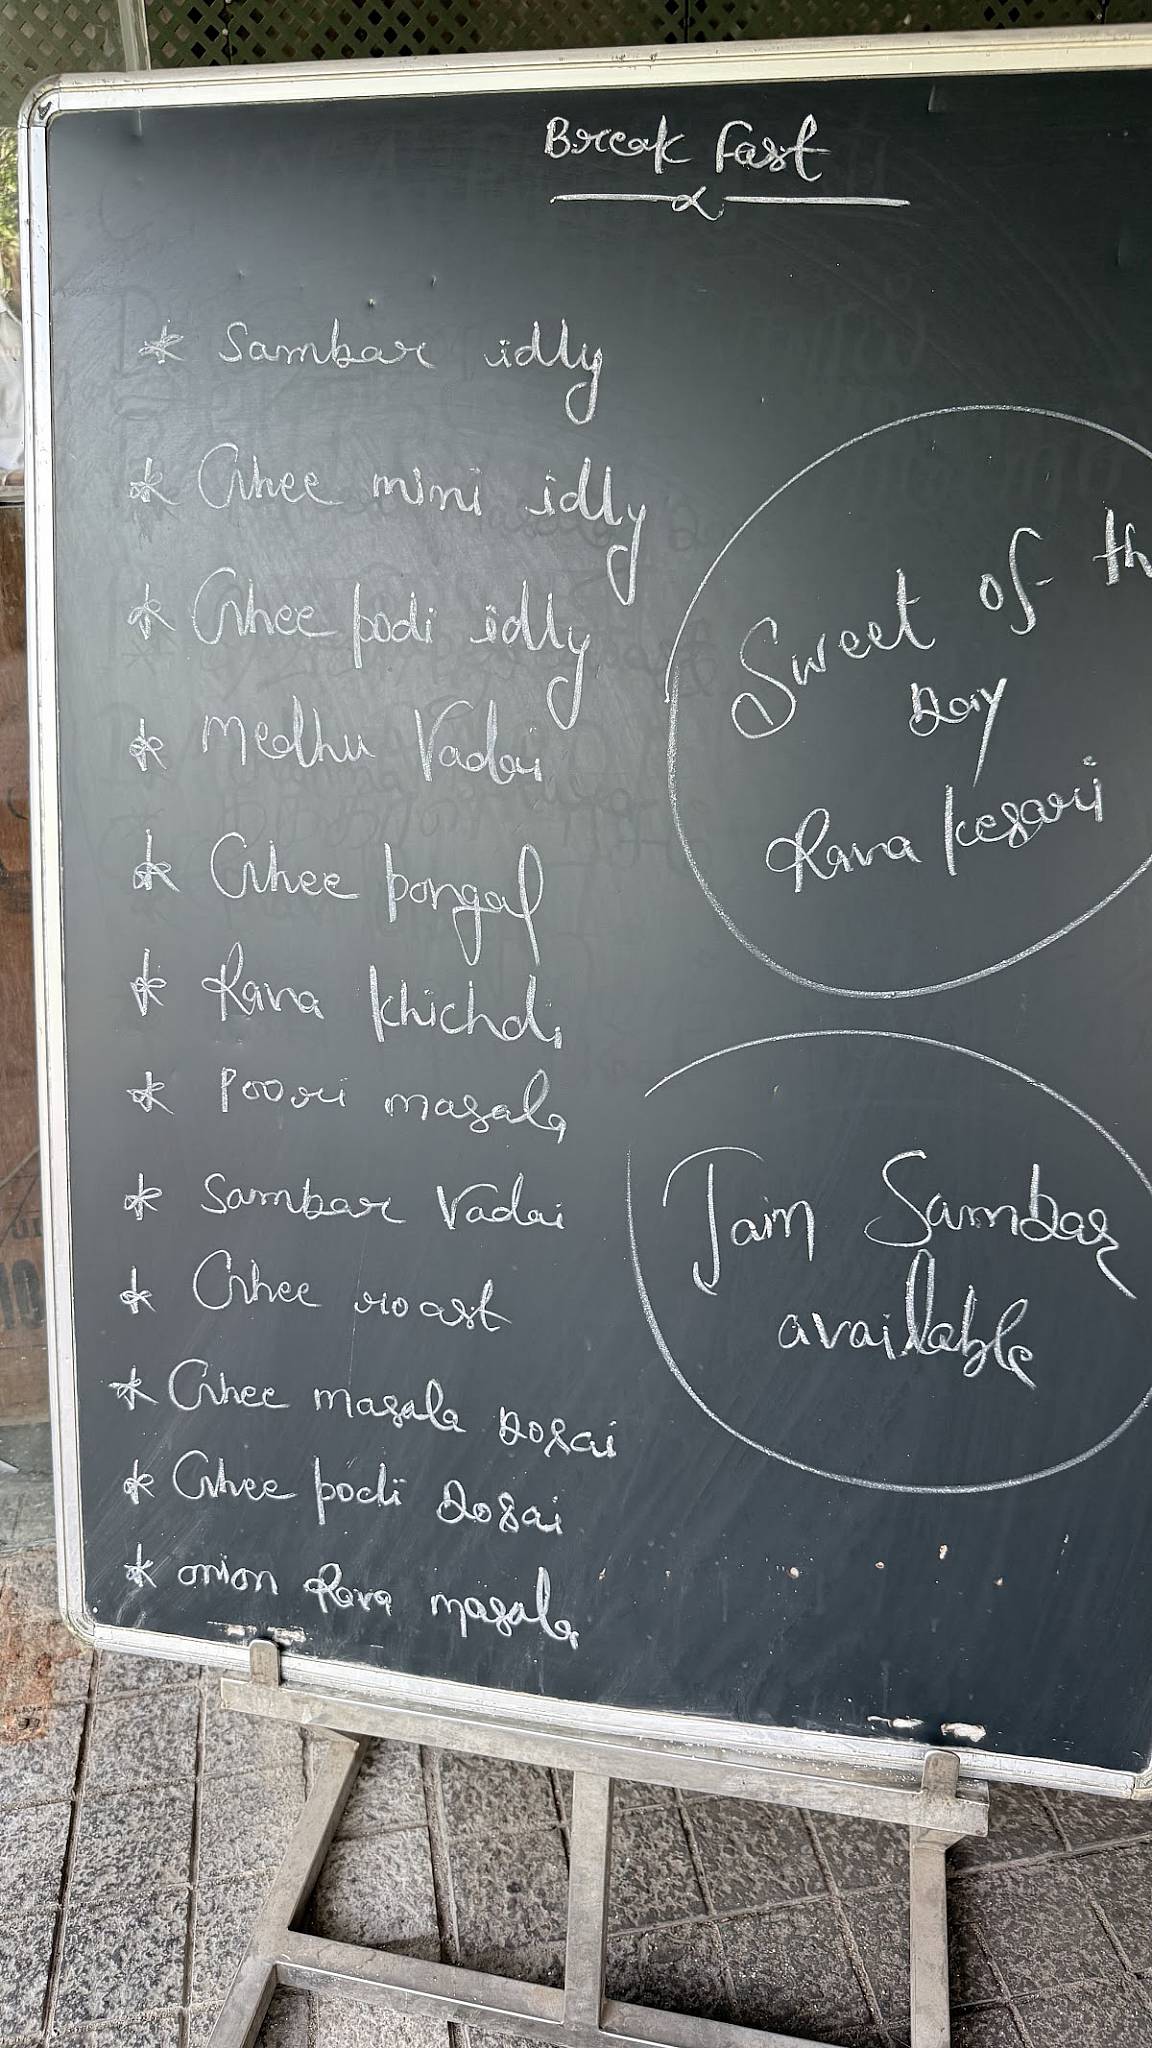 Break fast
* Sambar idly
* Ghee mini idly
* Ghee podi idly
* Medhu Vadai
* Ghee pongal
* Rava khichdi
* Poori masala
* Sambar Vadai
* Ghee roast
* Ghee masala Dosai
* Ghee podi Dosai
* onion Rava masala
Sweet of th
Day
Rava kesari
Jain Sambar
available